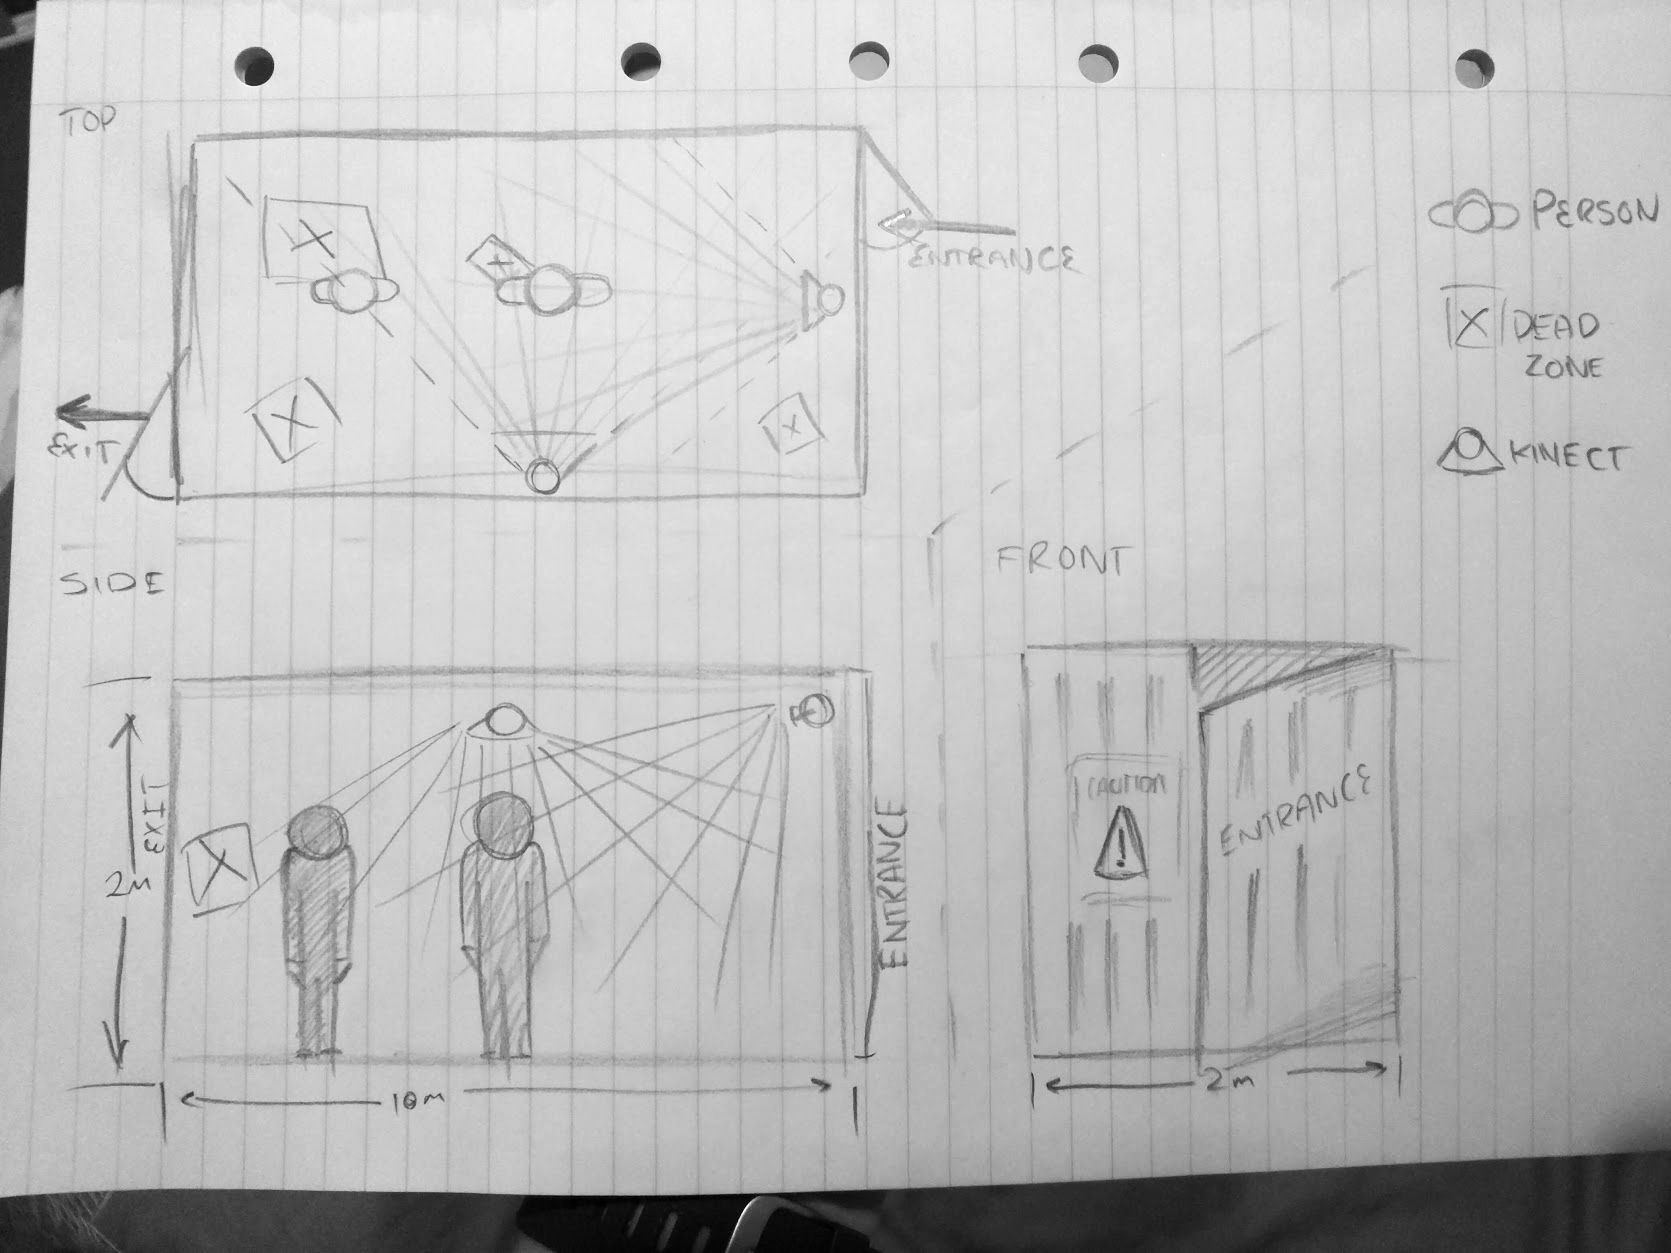 TOP
ENTRANCE
EXIT
PERSON
DEAD
ZONE
KINECT
SIDE
FRONT
EXIT
2m
ENTRANCE
10m
CAUTION
!
ENTRANCE
2m